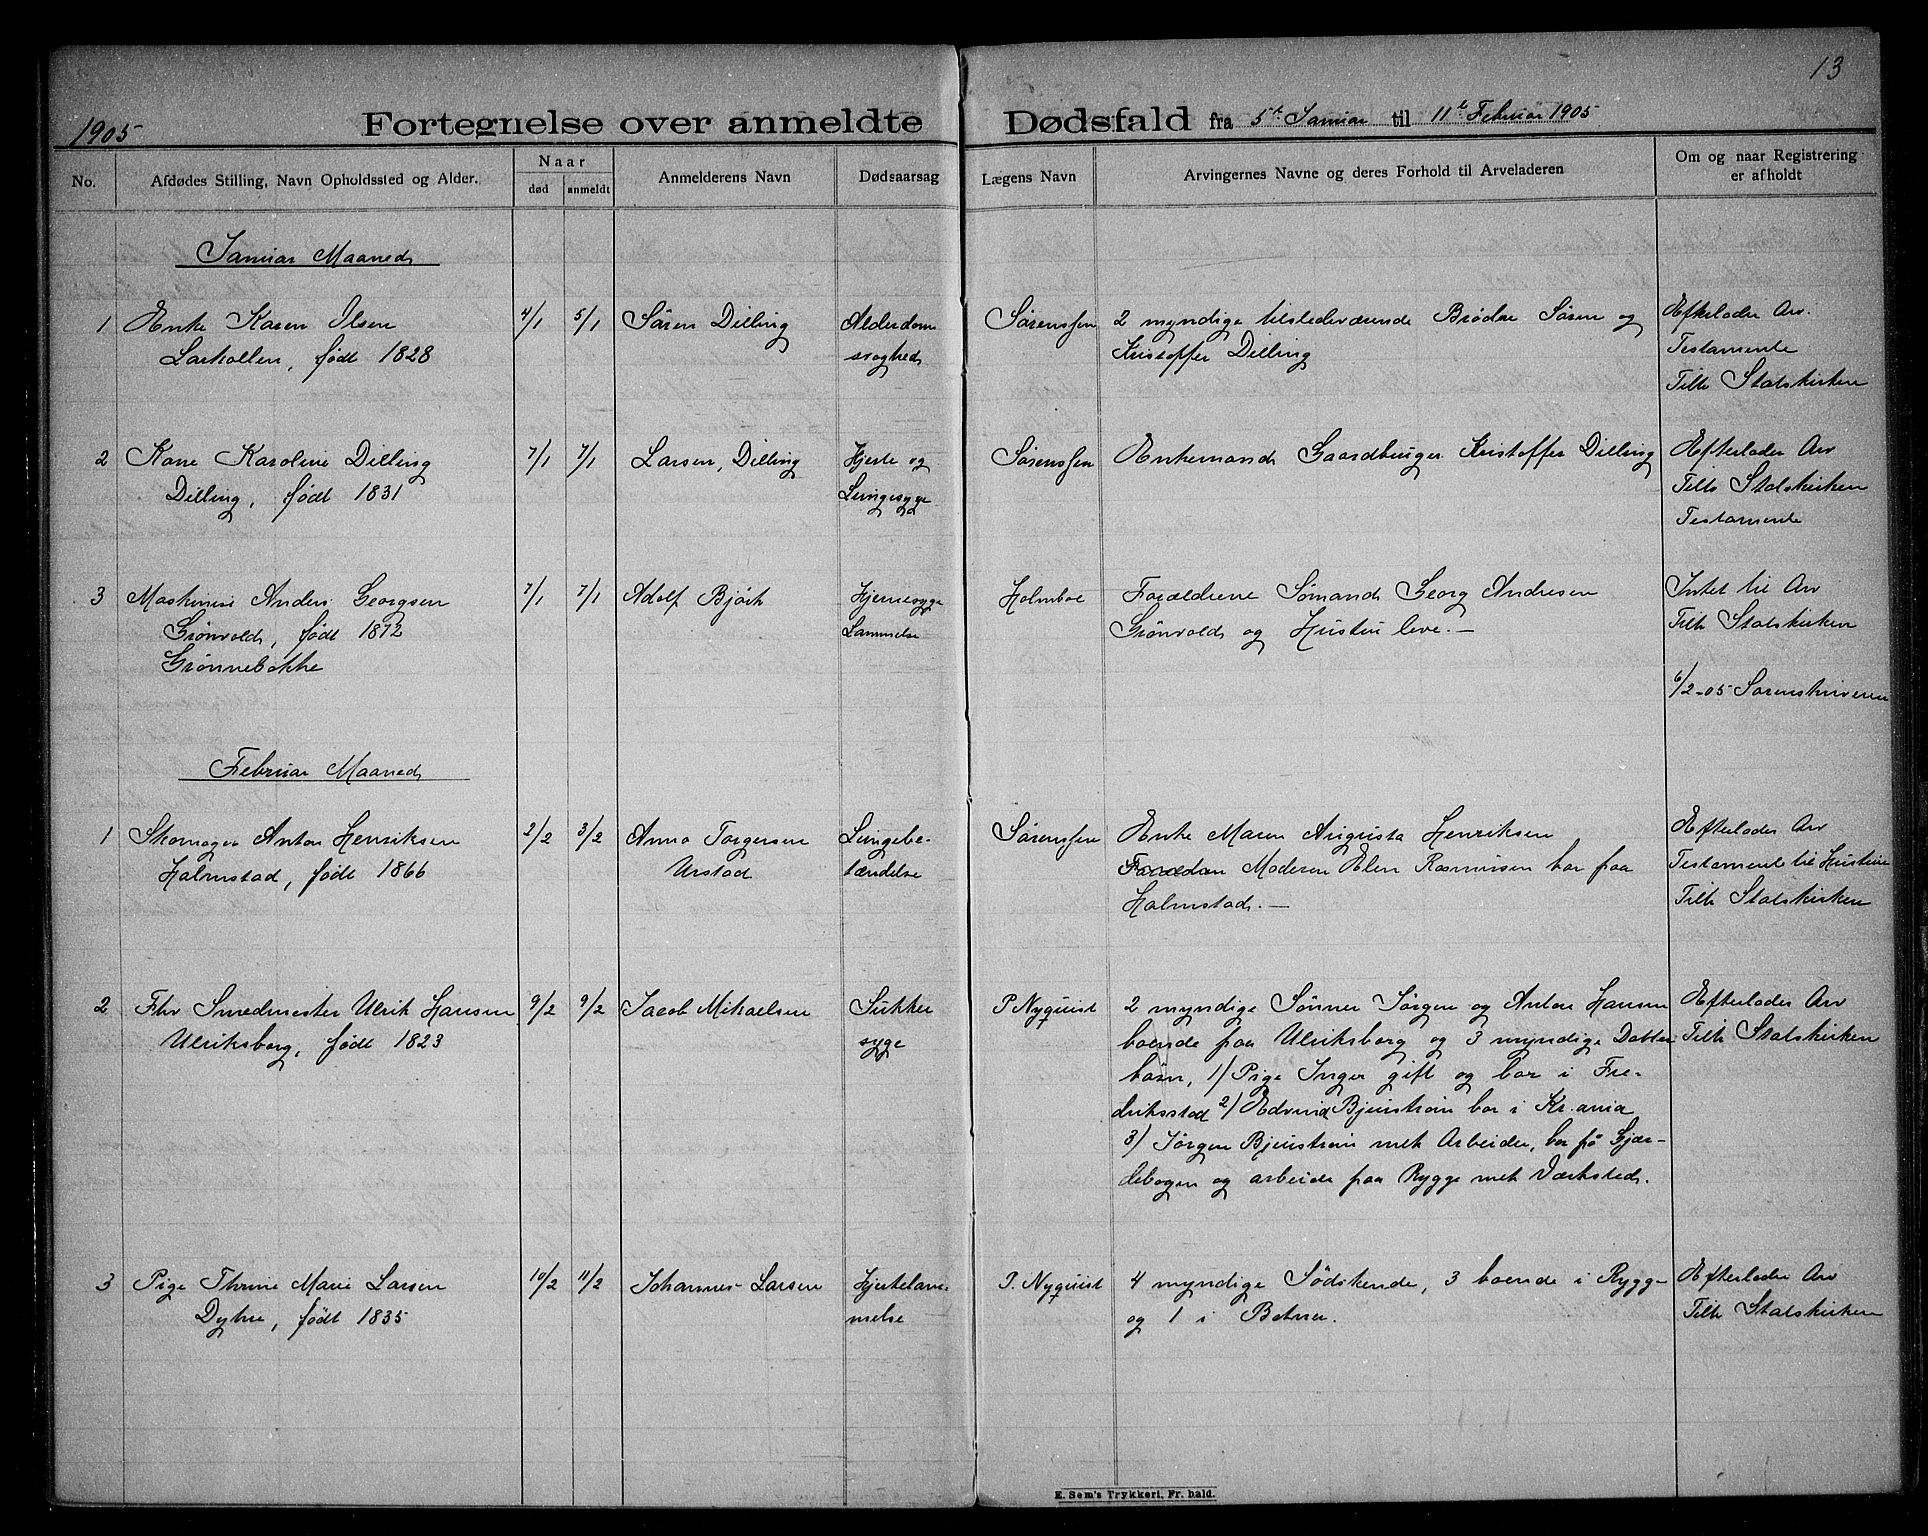 13
1905
Fortegnelse over anmeldte Dødsfald fra 5t Januar til 11t Februar 1905
No.
Afdødes Stilling, Navn Opholdssted og Alder.
Naar
død
anmeldt
Anmelderens Navn
Dødsaarsag
Lægens Navn
Arvingernes Navne og deres Forhold til Arveladeren
Om og naar Registrering
er afholdt
Januar Maaned
1
Enke Karen Olsen
Larkollen, født 1828
4/1
5/1
Sören Dilling
Alderdom
svaghed
Sørenssen
2 myndige tilstedeværende Brødre Sören og
Kristoffer Dilling
Efterlader Arv.
Testamente
Tilh Statskirken
2
Kone Karoline Dilling
Dilling, født 1831
7/1
7/1
Larsen, Dilling
Hjerte og
Lungesyge
Sørenssen
Enkemand Gaardbruger Kristoffer Dilling
Efterlader Arv
Tilh Statskirken
Testamente
3
Maskinist Anders Georgsen
Grönvold, født 1872
Grønnebakke
7/1
7/1
Adolf Bjørk
Hjernesyge
Lammelse
Holmboe
Forældrene Sømand Georg Andresen
Grönvold og Hustru leve. —
Intet til Arv
Tilh Statskirken
6/2-05 Sorenskriveren
Februar Maaned
1
Skomager Anton Henriksen
Halmstad, født 1866
2/2
3/2
Anna Torgersen
Urstad
Lungebe-
tændelse
Sørenssen
Enke Maren Augusta Henriksen
Moderen Elen Rasmussen bor paa
Halmstad. —
Efterlader Arv
Testamente til Hustru
Tilh Statskirken
2
Fhv Smedmester Ulrik Hansen
Ulriksborg, født 1823
9/2
9/2
Jacob Mikaelsen
Sukker
syge
P. Nyquist
2 myndige Sønner Jørgen og Anton Hansen
boende paa Ulriksborg og 3 myndige Datter
børn, 1) Pige Inger gift og bor i Fre-
driksstad 2) Edvard Bjurström bor i Kr.ania
3) Jörgen Bjurström mek Arbeider, bor på Gjær-
lebogen og arbeide paa Rygge mek Værksted.
Efterlader Arv
Tilh Statskirken
3
Pige Thrine Marie Larsen
Dyhre, født 1835
10/2
11/2
Johannes Larsen
Hjertelam-
melse
P. Nyquist
4 myndige Södskende, 3 boende i Rygge
og 1 i Botner.
Efterlader Arv
Tilh Statskirken
E. Sem's Trykkeri, Fr. hald.